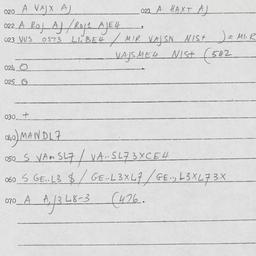 020 A VAJX AJ 021 A HAXT AJ
022 A ROJ AJ / ROJ1 AJE4 .
023 VVS OST3 LI:BE4 / MIR VAJSN NIS+ ) = MI.R
VAJSME4 NIS+ (502
024 O
025 O
030 +
040 MANDL7
050 S VAM SL7 / VA..SL73XCE4
060 S GE..L3 $ / GE..L3XL7 / GE..L3XL73X
070 A A,J3L8-3 (476.